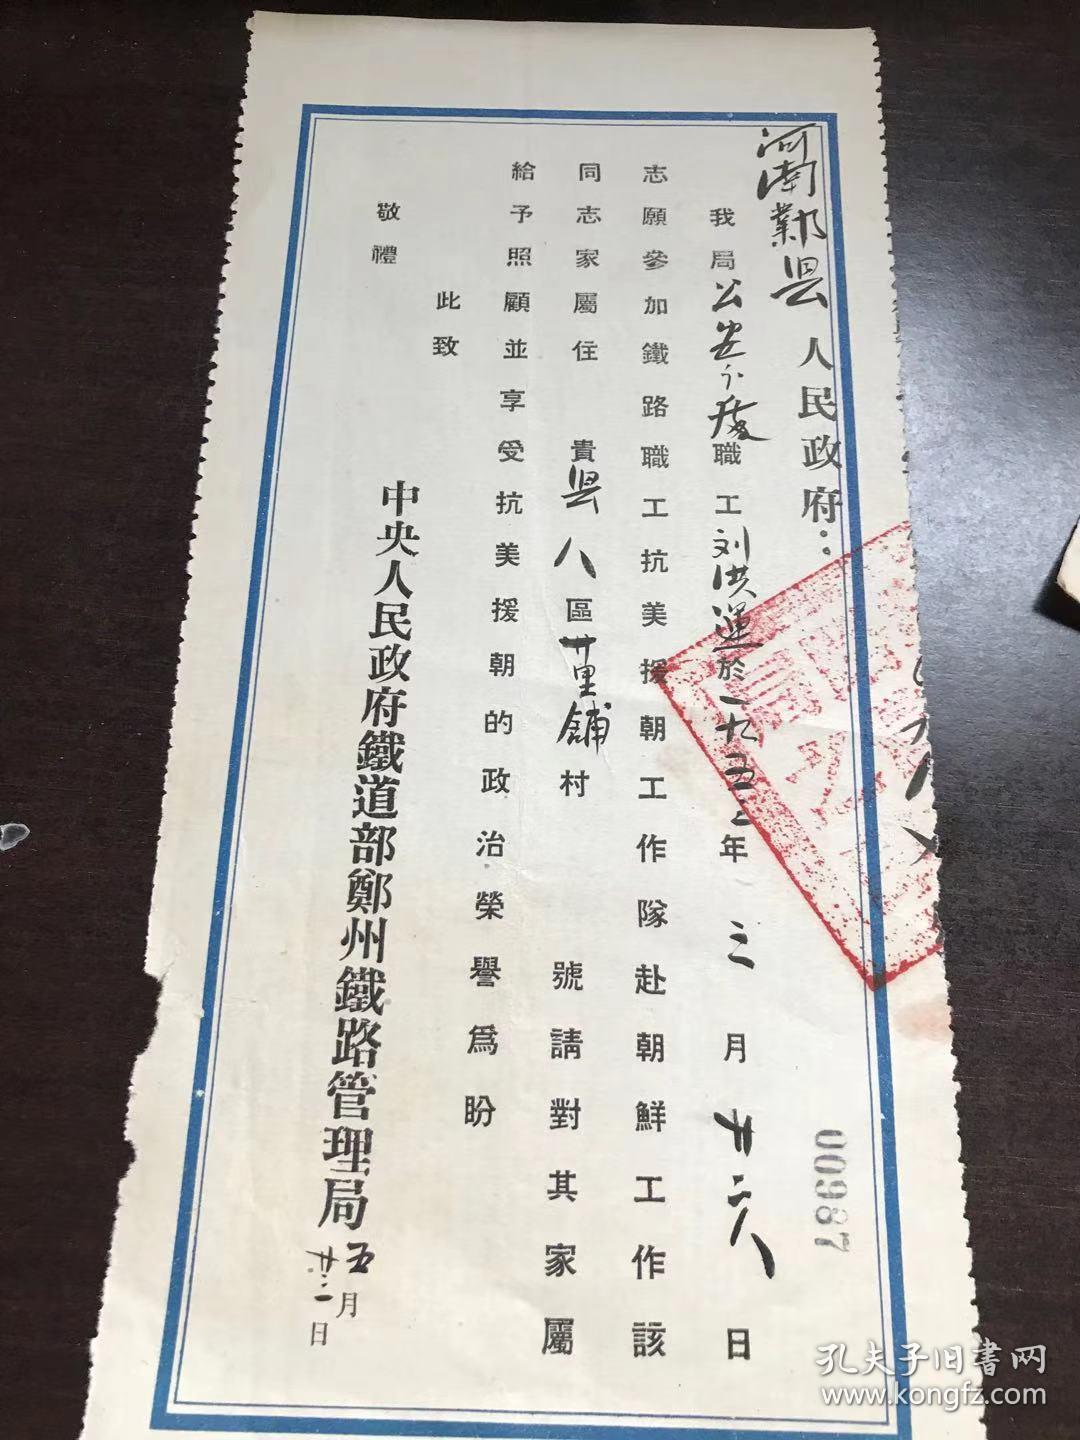 河南鄴县人民政府：
我局公安分處職工刘洪運於一九五二年三月廿六日
志願參加鐵路職工抗美援朝工作隊赴朝鮮工作該
同志家屬住貴县八區廿里舖村號請對其家屬
給予照顧並享受抗美援朝的政治榮譽爲盼
此致
敬禮
中央人民政府鐵道部鄭州鐵路管理局
五月
廿二日
00987
孔夫子旧書网
www.kongfz.com